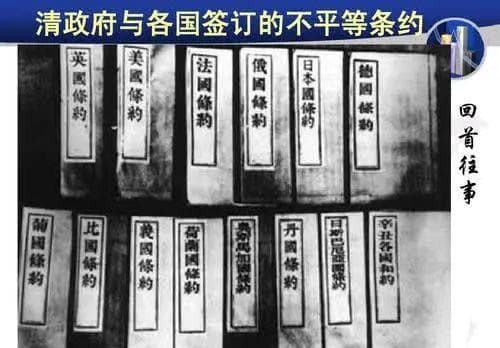 清政府与各国签订的不平等条约
英國條約
美國條約
法國條約
俄國條約
日本國條約
德國條約
回首往事
葡國條約
比國條約
義國條約
荷蘭國條約
奧斯馬加國條約
丹國條約
日斯巴尼亞國條約
辛丑各國和約